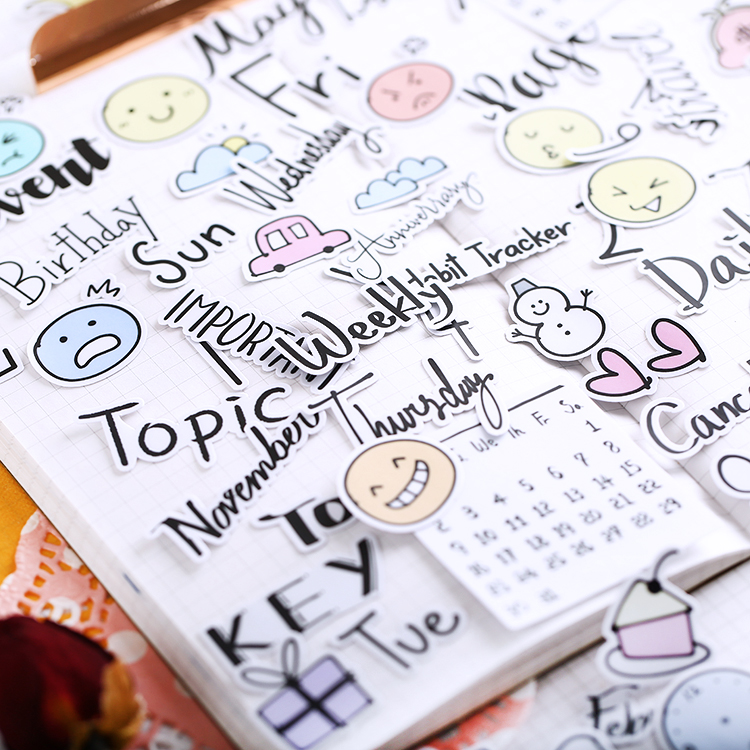 May
Fri
Page
vent
Wednesday
Birthday
Sun
Anniversary
Habit Tracker
Dail
IMPORTANT
Weekly
Thursday
Topic
Canc
November
To
We Th Fr Sa
1
2 3 4 5 6 7 8
9 10 11 12 13 14 15
16 17 18 19 20 21 22
23 24 25 26 27 28 29
30 31
KEY
Tue
Feb